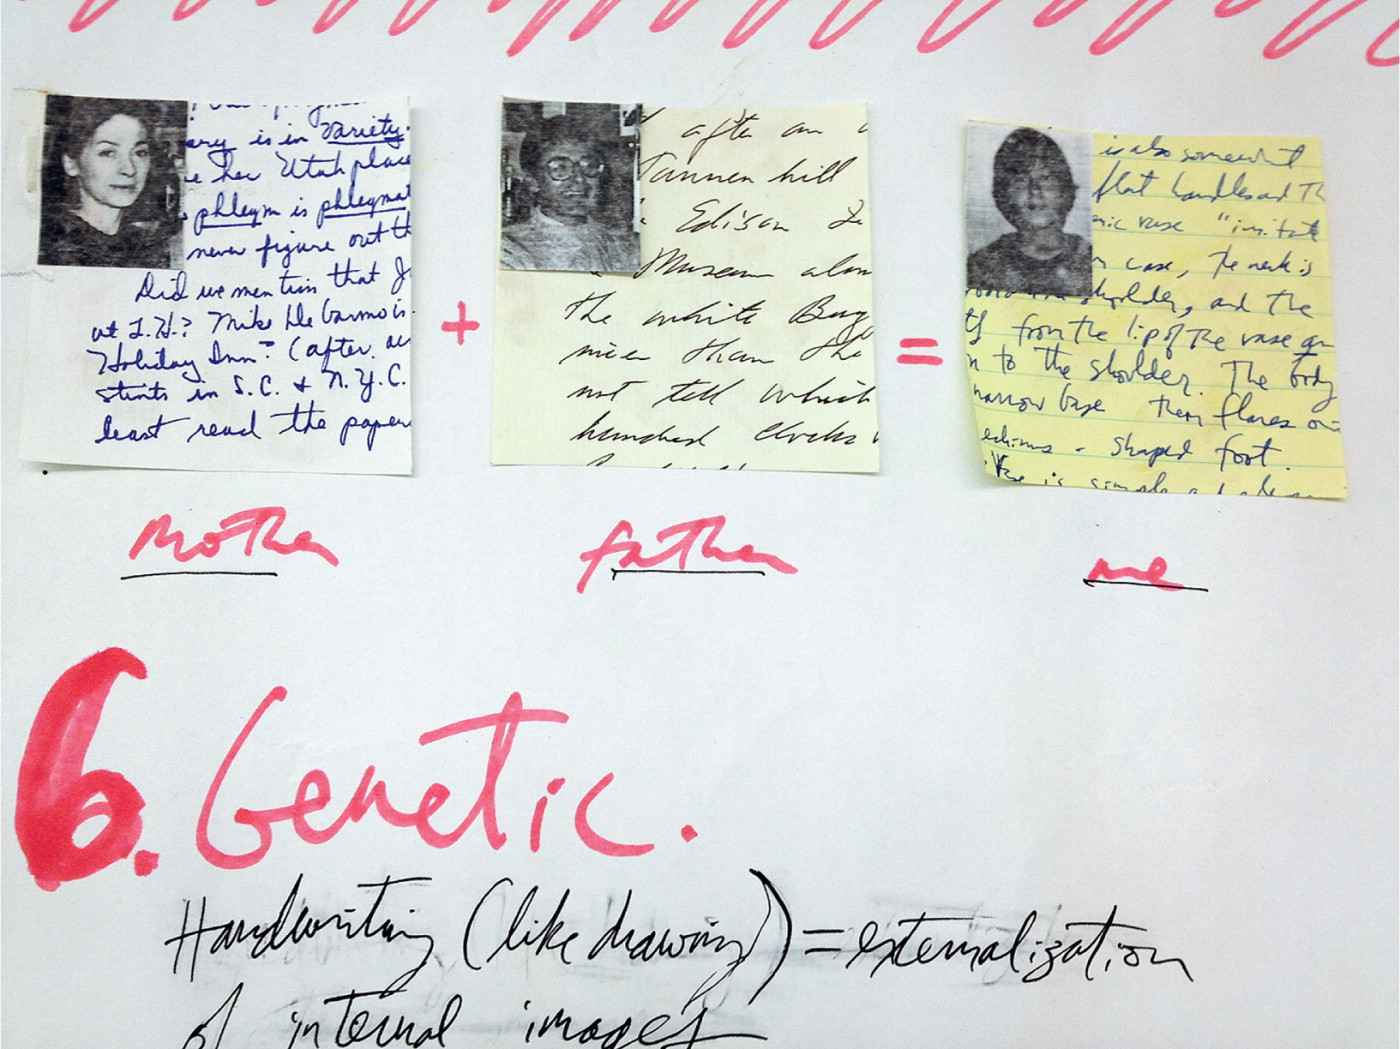 is in Variety.
her Utah place
phlegm is phlegmat
never figure out th
Did we mention that J
at I.H.? Mike De
Holiday Inn? (after
stints in S.C. & N.Y.C.
least read the paper
+
after an
Tannenhill
Edison
Museum alon
the white Bug
nicer than the
not tell which
hundred clocks
=
is also somewhat
flat handles and Th
mic vase "imitate
case, the neck is
shoulder, and the
from the lip of the vase
n to the shoulder. The body
narrow base then flares ou
echinus-shaped foot.
Vase is simple
Mother
father
me
6. Genetic.
Handwriting (like drawing) = externalization
of internal images